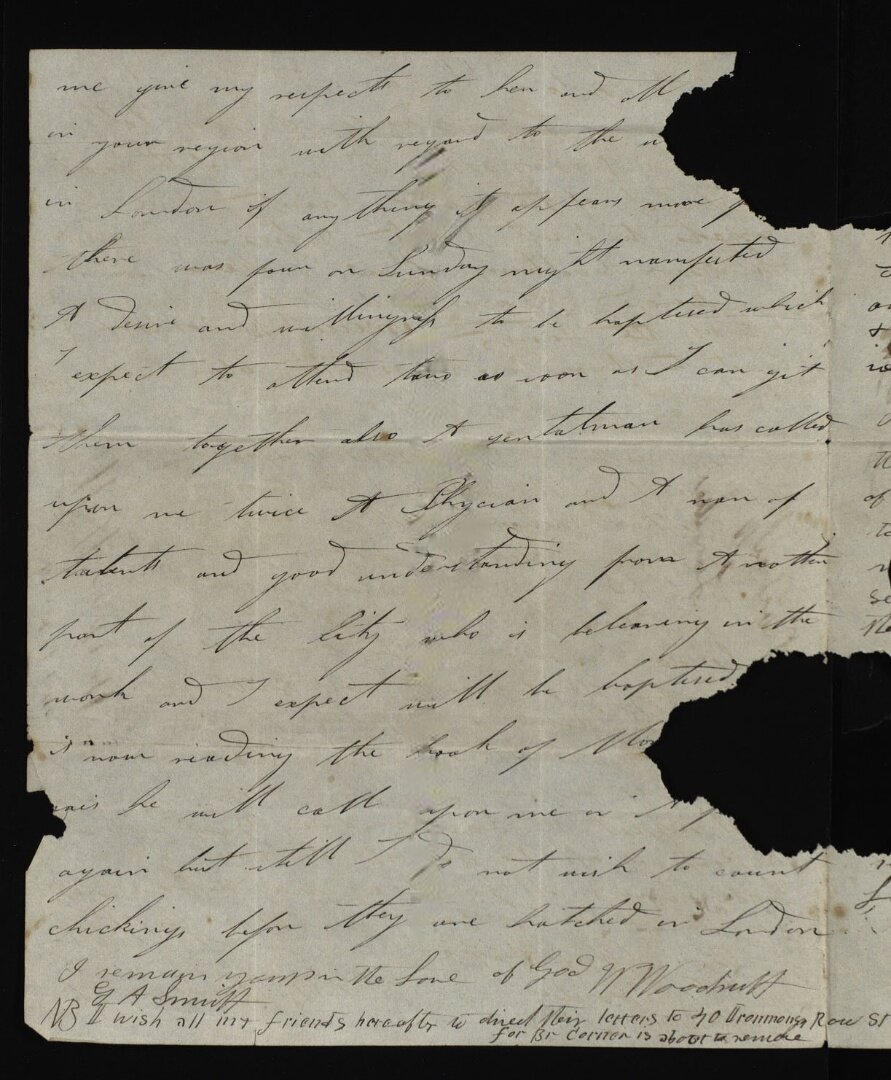 me give my respects to her and all
in your region with regard to the
in London if anything it appears more
there was four on Sunday night manifested
A desire and willingness to be baptised which
I expect to attend two as soon as I can git
them together also A gentalman has called
upon me twice A Phycian and A man of
talents and good understanding from A nother
part of the City who is beleaving in the
work and I expect will be baptised
is now reading the book of Mor
says he will call upon me in A
again but still I do not wish to count
chickings before they are hatched in London
I remain yours in the Love of God W Woodruff
G A Smith
NB I wish all my friends hereafter to direct their letters to 40 Ironmonger Row St
for Br Corner is about to remove